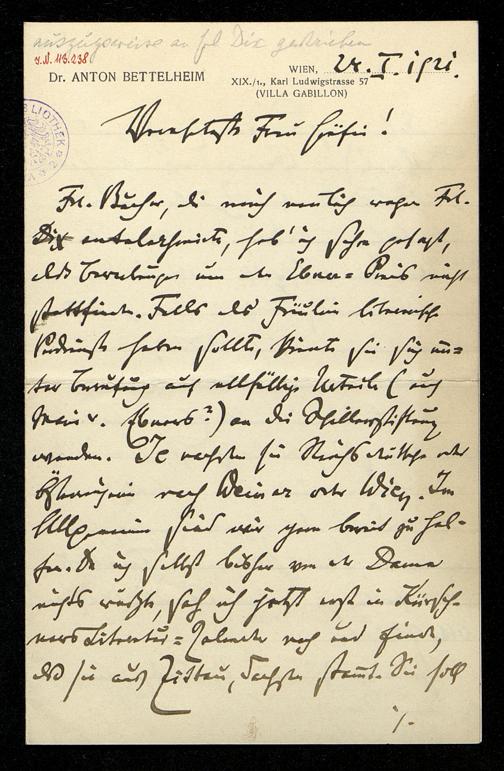 auszugsweise an Frl Dix geschrieben
I.N. 118.238
Dr. ANTON BETTELHEIM
WIEN, 24. I. 1921.
XIX./1., Karl Ludwigstrasse 57
(VILLA GABILLON)
BIBLIOTHEK
Verehrteste Frau Gräfin!
Frl. Bucher, die mich neulich wegen Frl.
Dix, hab' ich schon gesagt,
daß Bewerbungen um den Ebner=Preis nicht
stattfinden. Falls das Fräulein literarische
Verdienste haben sollte, könnte sie sich un=
ter Berufung auf allfällige Urteile (auch
Marie v. Ebners?) an die Schillerstiftung
wenden. Je nachdem sie Reichsdeutsche oder
Österreicherin nach Weimar oder Wien. Im
Allgemeinen sind wir gern bereit zu hel=
fen. Da ich selbst bisher von der Dame
nichts wußte, sah ich jetzt erst in Kürsch=
ners Literatur=Calender nach und finde,
daß sie aus Zittau, Sachsen stammt. Sie soll
./.